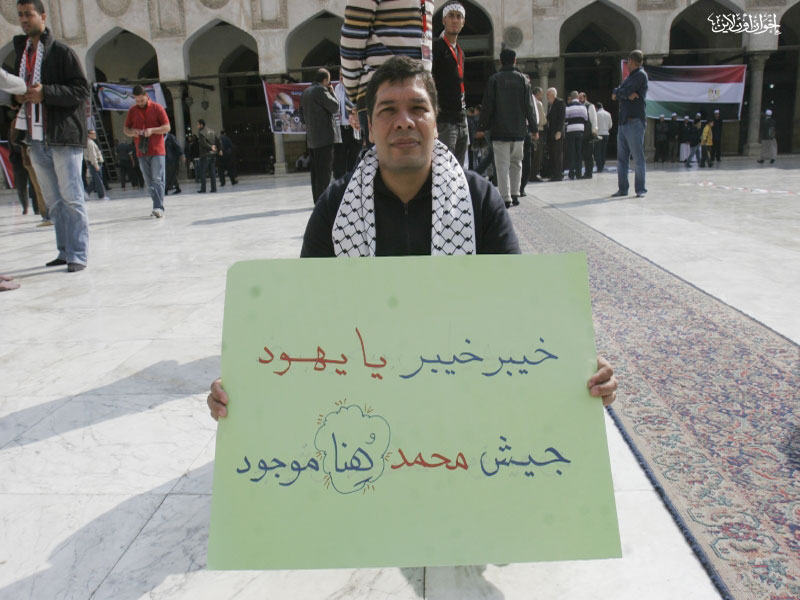 إخوان أون لاين
خيبر خيبر يا يهود
جيش محمد هُنا موجود